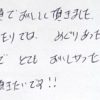 頂でおいしく頂きました。
たりでは、めぐりあった
で とても おいしかった
頂きたいです!!